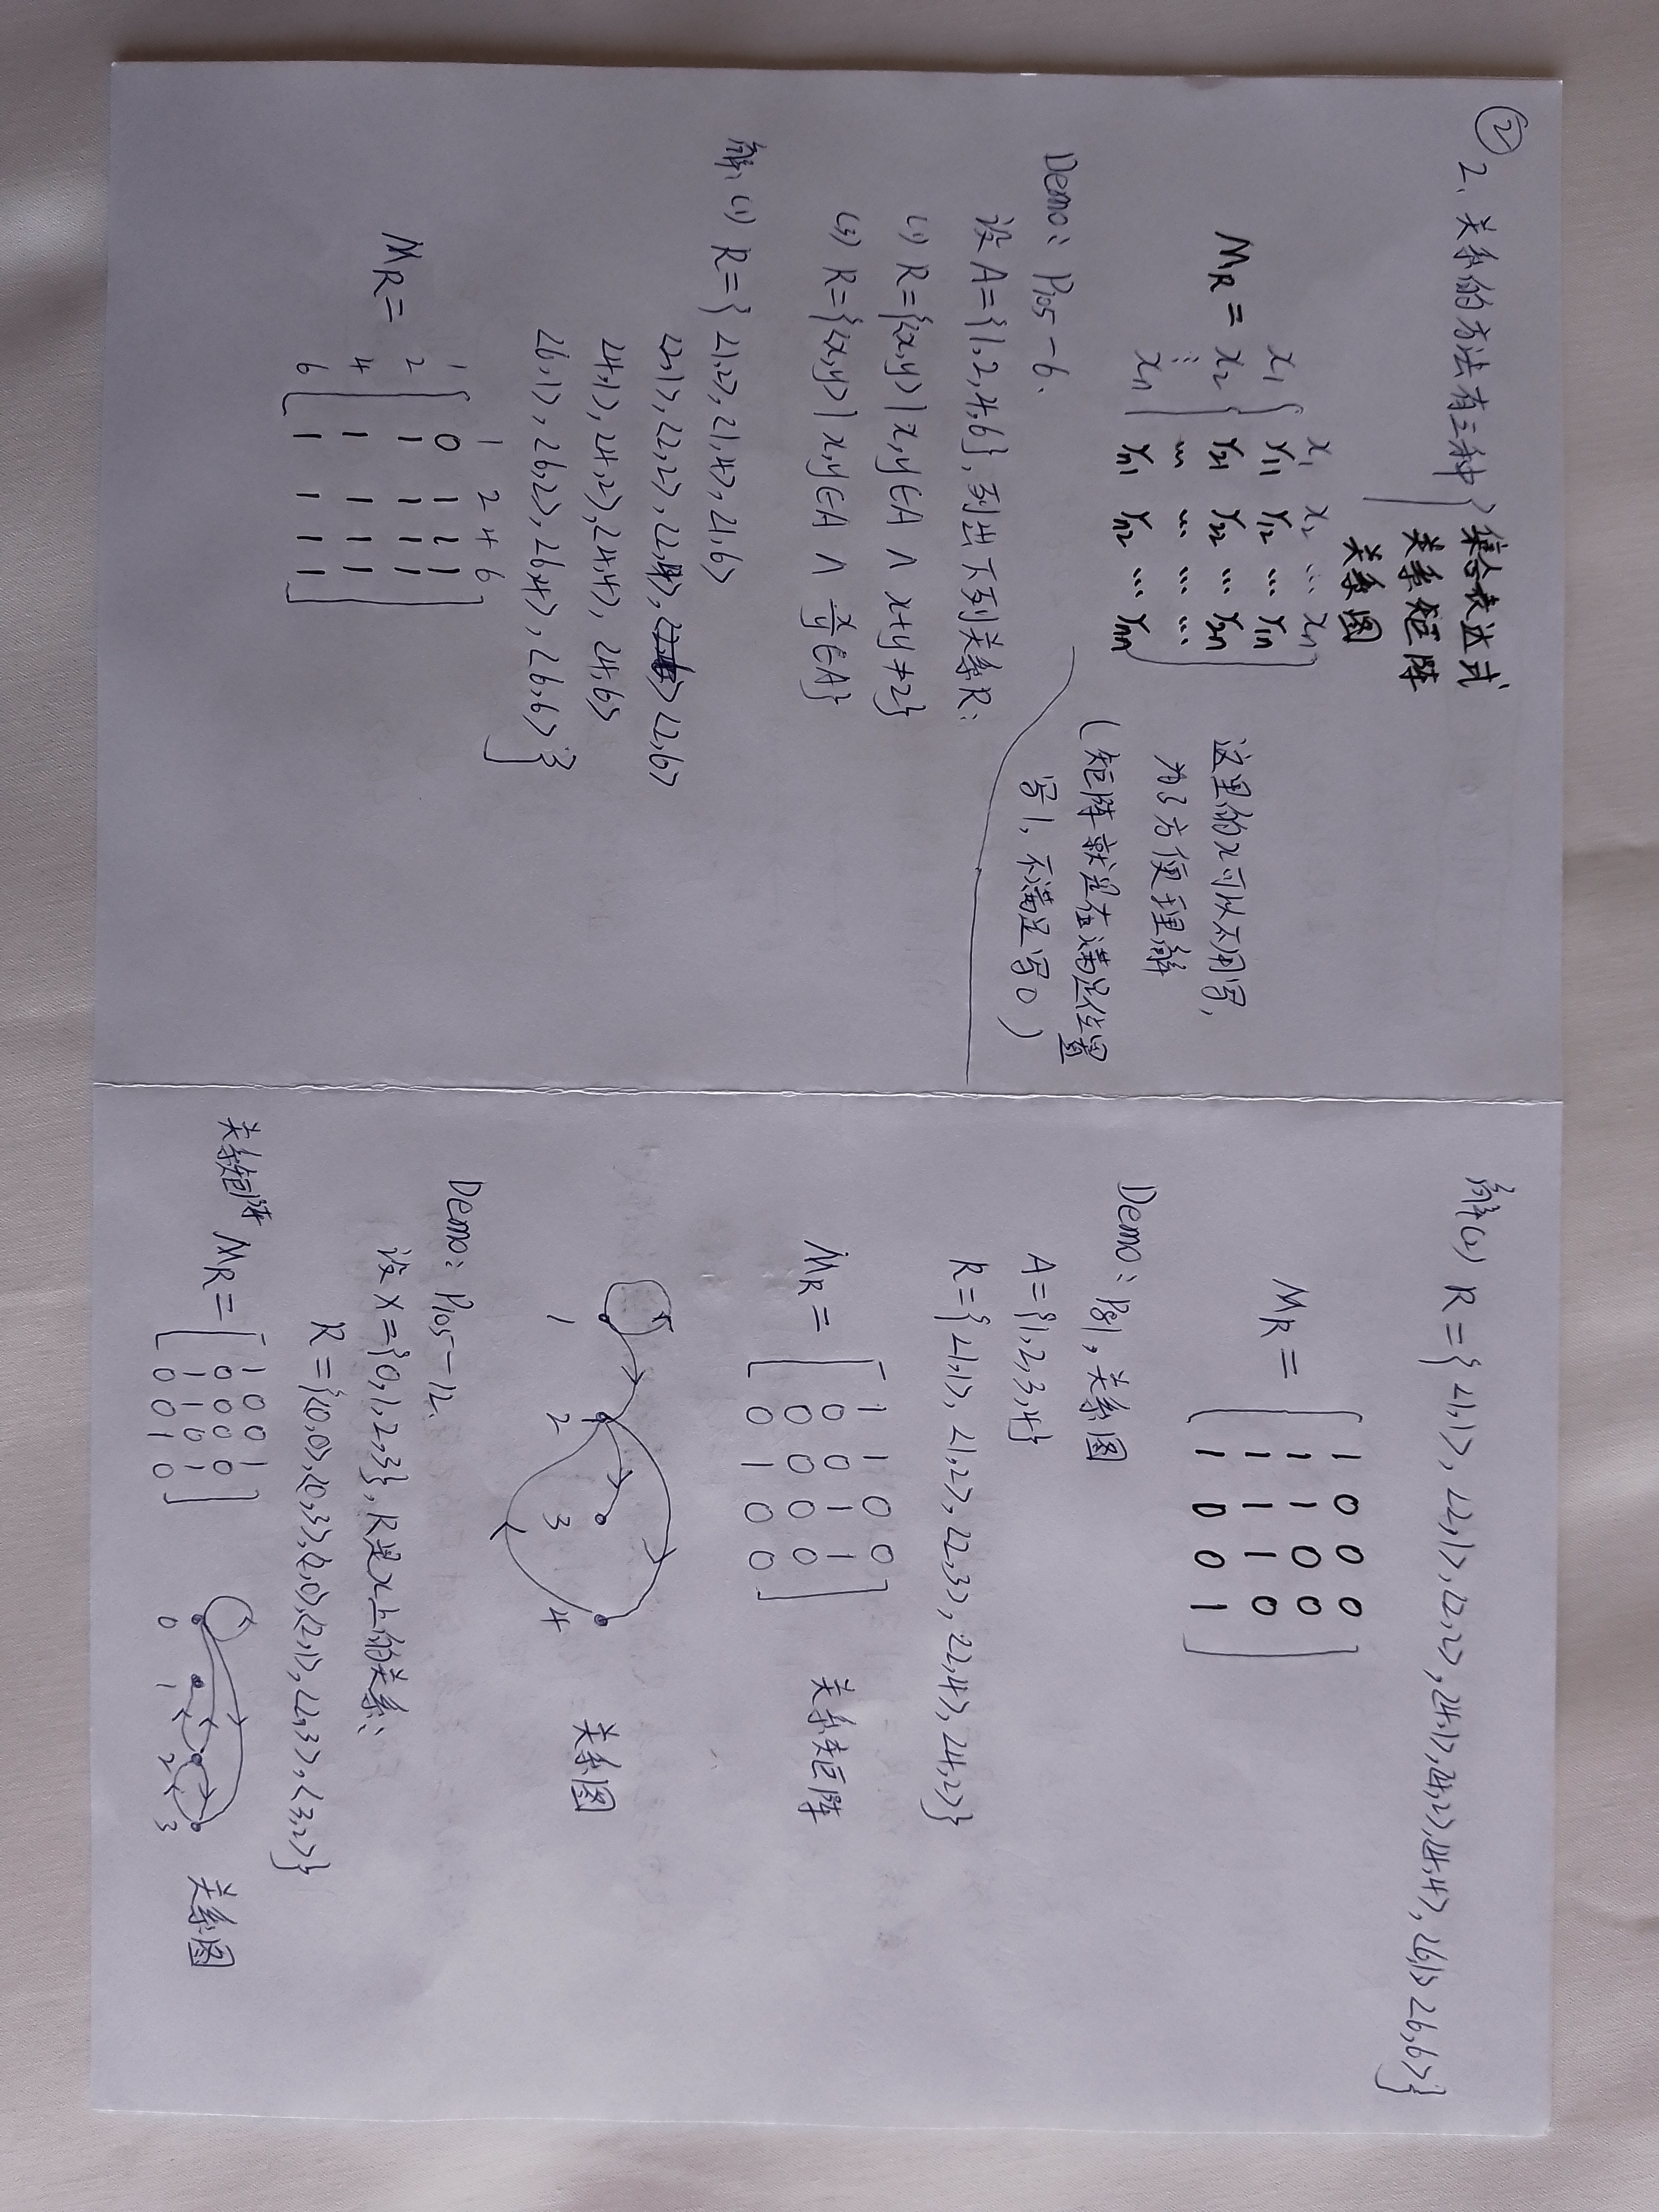 ②
2、关系的方法有三种 { 集合表达式
关系矩阵
关系图
x₁ x₂ … xₙ
x₁ r₁₁ r₁₂ … r₁ₙ
M_R = x₂ r₂₁ r₂₂ … r₂ₙ
⋮ … … … …
xₙ rₙ₁ rₙ₂ … rₙₙ
这里的x可以不用写,
为了方便理解
(矩阵就是在满足位置
写1, 不满足写0)
Demo: P₁₀₅-6.
设A={1,2,4,6}, 列出下列关系R:
(1) R={<x,y>|x,y∈A ∧ x+y≠2}
(3) R={<x,y>|x,y∈A ∧ x/y∈A}
解: (1) R={ <1,2>, <1,4>, <1,6>
<2,1>, <2,2>, <2,4>, <2,6>
<4,1>, <4,2>, <4,4>, <4,6>
<6,1>, <6,2>, <6,4>, <6,6> }
1 2 4 6
1 0 1 1 1
2 1 1 1 1
M_R =
4 1 1 1 1
6 1 1 1 1
解(2) R={ <1,1>, <2,1>, <2,2>, <4,1>, <4,2>, <4,4>, <6,1> <6,6>}
1 0 0 0
1 1 0 0
M_R =
1 1 1 0
1 0 0 1
Demo: P81, 关系图
A={1,2,3,4}
R={<1,1>, <1,2>, <2,3>, <2,4>, <4,2>}
1 1 0 0
0 0 1 1
M_R = 关系矩阵
0 0 0 0
0 1 0 0
1 2 3 4 关系图
Demo: P₁₀₅-12.
设X={0,1,2,3}, R是x上的关系:
R={<0,0>,<0,3>,<2,0>,<2,1>,<2,3>,<3,2>}
1 0 0 1
关系矩阵 M_R = 0 0 0 0
1 1 0 1
0 0 1 0
0 1 2 3 关系图